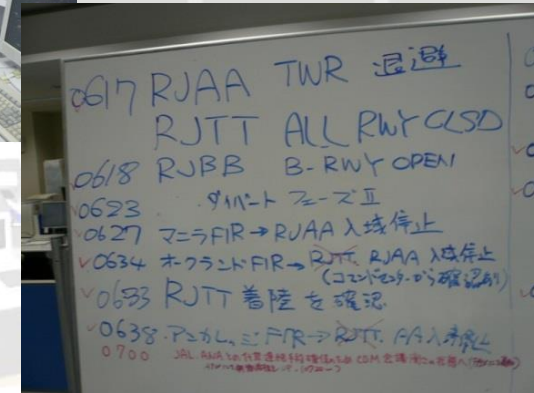 0617 RJAA TWR 退避
RJTT ALL RWY CLSD
0618 RJBB B-RWY OPEN
0623 ・ダイバート フェーズⅡ
0627 マニラFIR→RJAA 入域停止
0634 オークランドFIR→RJTT, RJAA 入域停止
(コマンドセンターから確認あり)
0633 RJTT 着陸を確認
0638 アンカレッジFIR→RJTT, AA入域停止
0700 JAL, ANA CDM